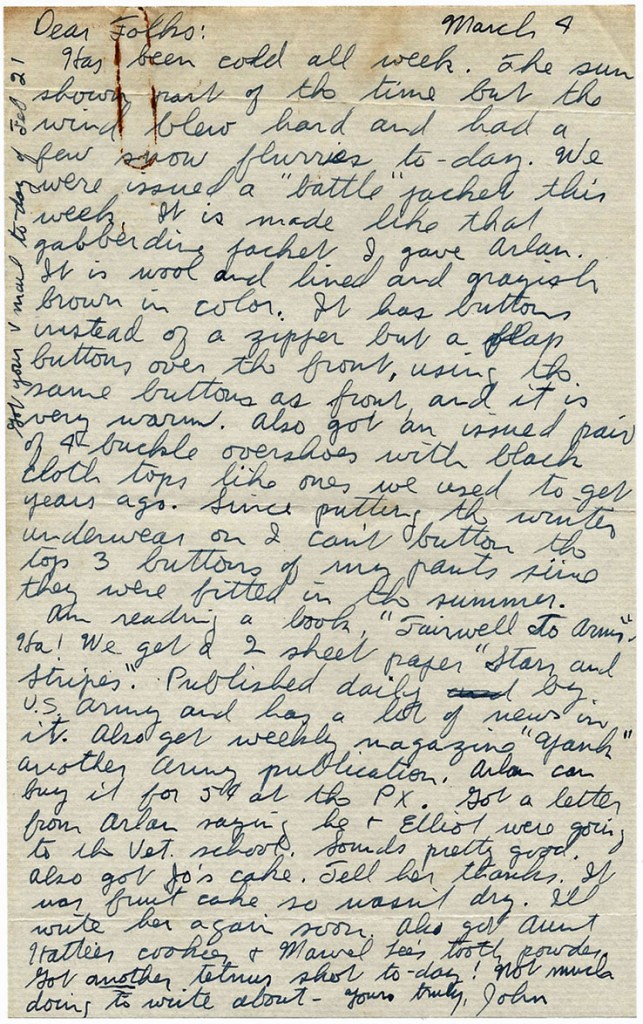 Dear Folks: March 4
Has been cold all week. The sun
shown part of the time but the
wind blew hard and had a
few snow flurries to-day. We
were issued a "battle" jacket this
week. It is made like that
gabberdine jacket I gave Arlan.
It is wool and lined and grayish
brown in color. It has buttons
instead of a zipper but a flap
buttons over the front, using the
same buttons as front, and it is
very warm. Also got an issued pair
of 4-buckle overshoes with black
cloth tops like ones we used to get
years ago. Since putting the winter
underwear on I can't button the
top 3 buttons of my pants since
they were fitted in the summer.
Am reading a book, "Fairwell to Arms".
Ha! We get a 2 sheet paper "Stars and
Stripes". Published daily and by
U.S. Army and has a lot of news in
it. Also get weekly magazine "Yank"
another Army publication. Arlan can
buy it for 5¢ at the PX. Got a letter
from Arlan saying he + Elliot were going
to the Vet. school. Sounds pretty good.
Also got Jo's cake. Tell her thanks. It
was fruit cake so wasn't dry. I'll
write her again soon. Also got Aunt
Hattie's cookies + Marvel Lee's tooth powder.
Got another tetnus shot to-day! Not much
doing to write about - Yours truly, John
Got your v mail to-day of Feb 21